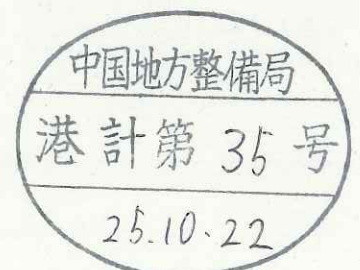 中国地方整備局
港計第35号
25.10.22